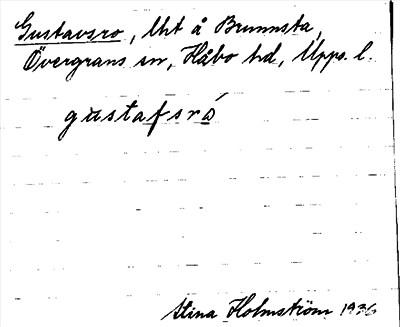 Gustavsro, lht å Brunnsta,
Övergrans sn, Håbo hd, Upps. l.
gustafsró
Stina Holmström 1936